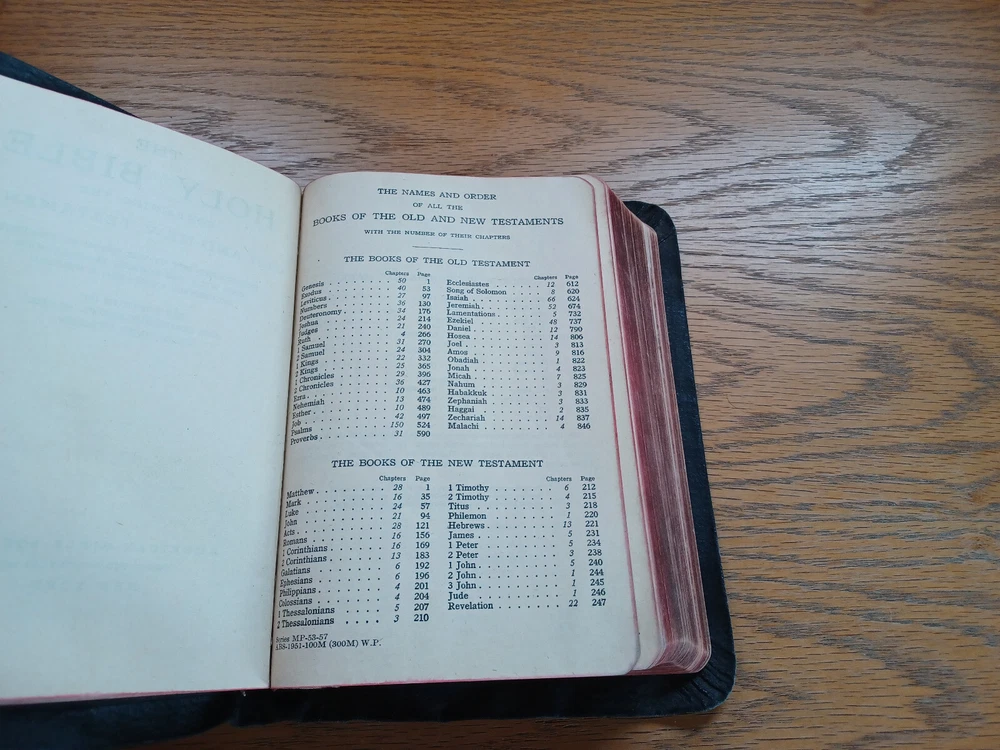 THE NAMES AND ORDER
OF ALL THE
BOOKS OF THE OLD AND NEW TESTAMENTS
WITH THE NUMBER OF THEIR CHAPTERS
THE BOOKS OF THE OLD TESTAMENT
Chapters Page
Genesis 50 1
Exodus 40 53
Leviticus 27 97
Numbers 36 130
Deuteronomy 34 176
Joshua 24 214
Judges 21 240
Ruth 4 266
1 Samuel 31 270
2 Samuel 24 304
1 Kings 22 332
2 Kings 25 365
1 Chronicles 29 396
2 Chronicles 36 427
Ezra 10 463
Nehemiah 13 474
Esther 10 489
Job 42 497
Psalms 150 524
Proverbs 31 590
Chapters Page
Ecclesiastes 12 612
Song of Solomon 8 620
Isaiah 66 624
Jeremiah 52 674
Lamentations 5 732
Ezekiel 48 737
Daniel 12 790
Hosea 14 806
Joel 3 813
Amos 9 816
Obadiah 1 822
Jonah 4 823
Micah 7 825
Nahum 3 829
Habakkuk 3 831
Zephaniah 3 833
Haggai 2 835
Zechariah 14 837
Malachi 4 846
THE BOOKS OF THE NEW TESTAMENT
Chapters Page
Matthew 28 1
Mark 16 35
Luke 24 57
John 21 94
Acts 28 121
Romans 16 156
1 Corinthians 16 169
2 Corinthians 13 183
Galatians 6 192
Ephesians 6 196
Philippians 4 201
Colossians 4 204
1 Thessalonians 5 207
2 Thessalonians 3 210
Chapters Page
1 Timothy 6 212
2 Timothy 4 215
Titus 3 218
Philemon 1 220
Hebrews 13 221
James 5 231
1 Peter 5 234
2 Peter 3 238
1 John 5 240
2 John 1 244
3 John 1 245
Jude 1 246
Revelation 22 247
Series MP-53-57
ABS-1951-100M (300M) W.P.